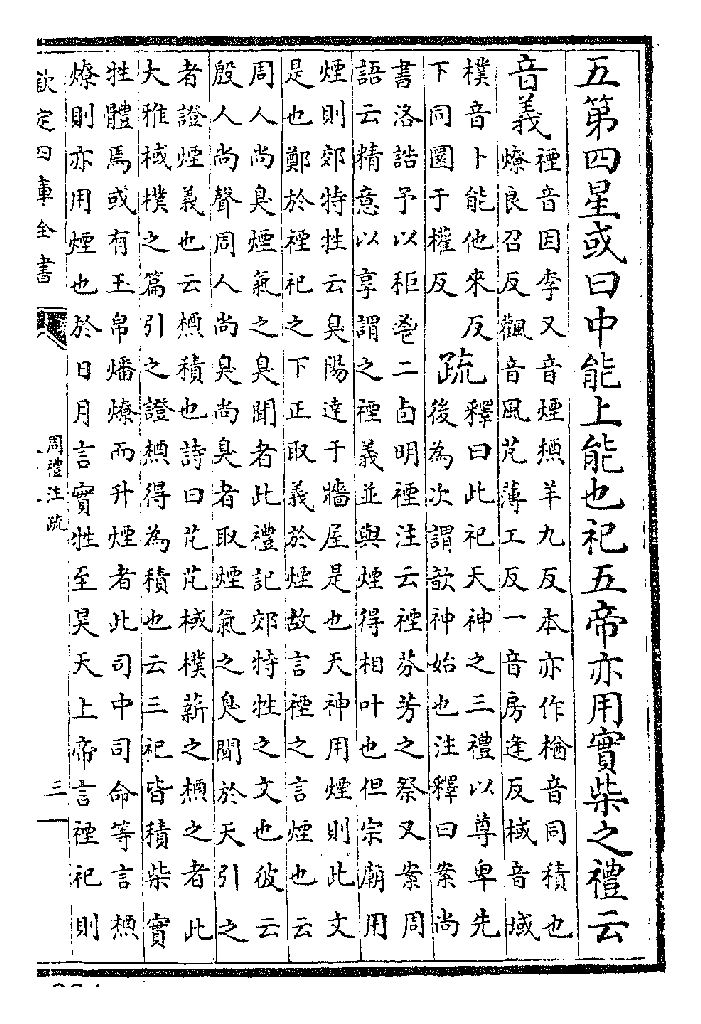 五第四星或曰中能上能也祀五帝亦用實柴之禮云
音義
禋音因李又音煙槱羊九反本亦作楢音同積也
燎良召反觀音風芃薄工反一音房逢反棫音域
樸音卜能他來反
下同圜于權反
疏
釋曰此祀天神之三禮以尊卑先
後為次謂歆神始也注釋曰案尚
書洛誥予以秬鬯二卣明禋注云禋芬芳之祭又案周
語云精意以享謂之禋義並與煙得相叶也但宗廟用
煙則郊特牲云臭陽達于牆屋是也天神用煙則此文
是也鄭於禋祀之下正取義於煙故言禋之言煙也云
周人尚臭煙氣之臭聞者此禮記郊特牲之文也彼云
殷人尚聲周人尚臭尚臭者取煙氣之臭聞於天引之
者證煙義也云槱積也詩曰芃芃棫樸薪之槱之者此
大雅棫樸之篇引之證槱得為積也云三祀皆積柴實
牲體焉或有玉帛燔燎而升煙者此司中司命等言槱
燎則亦用煙也於日月言實牲至昊天上帝言禋祀則
欽定四庫全書
周禮注疏
三